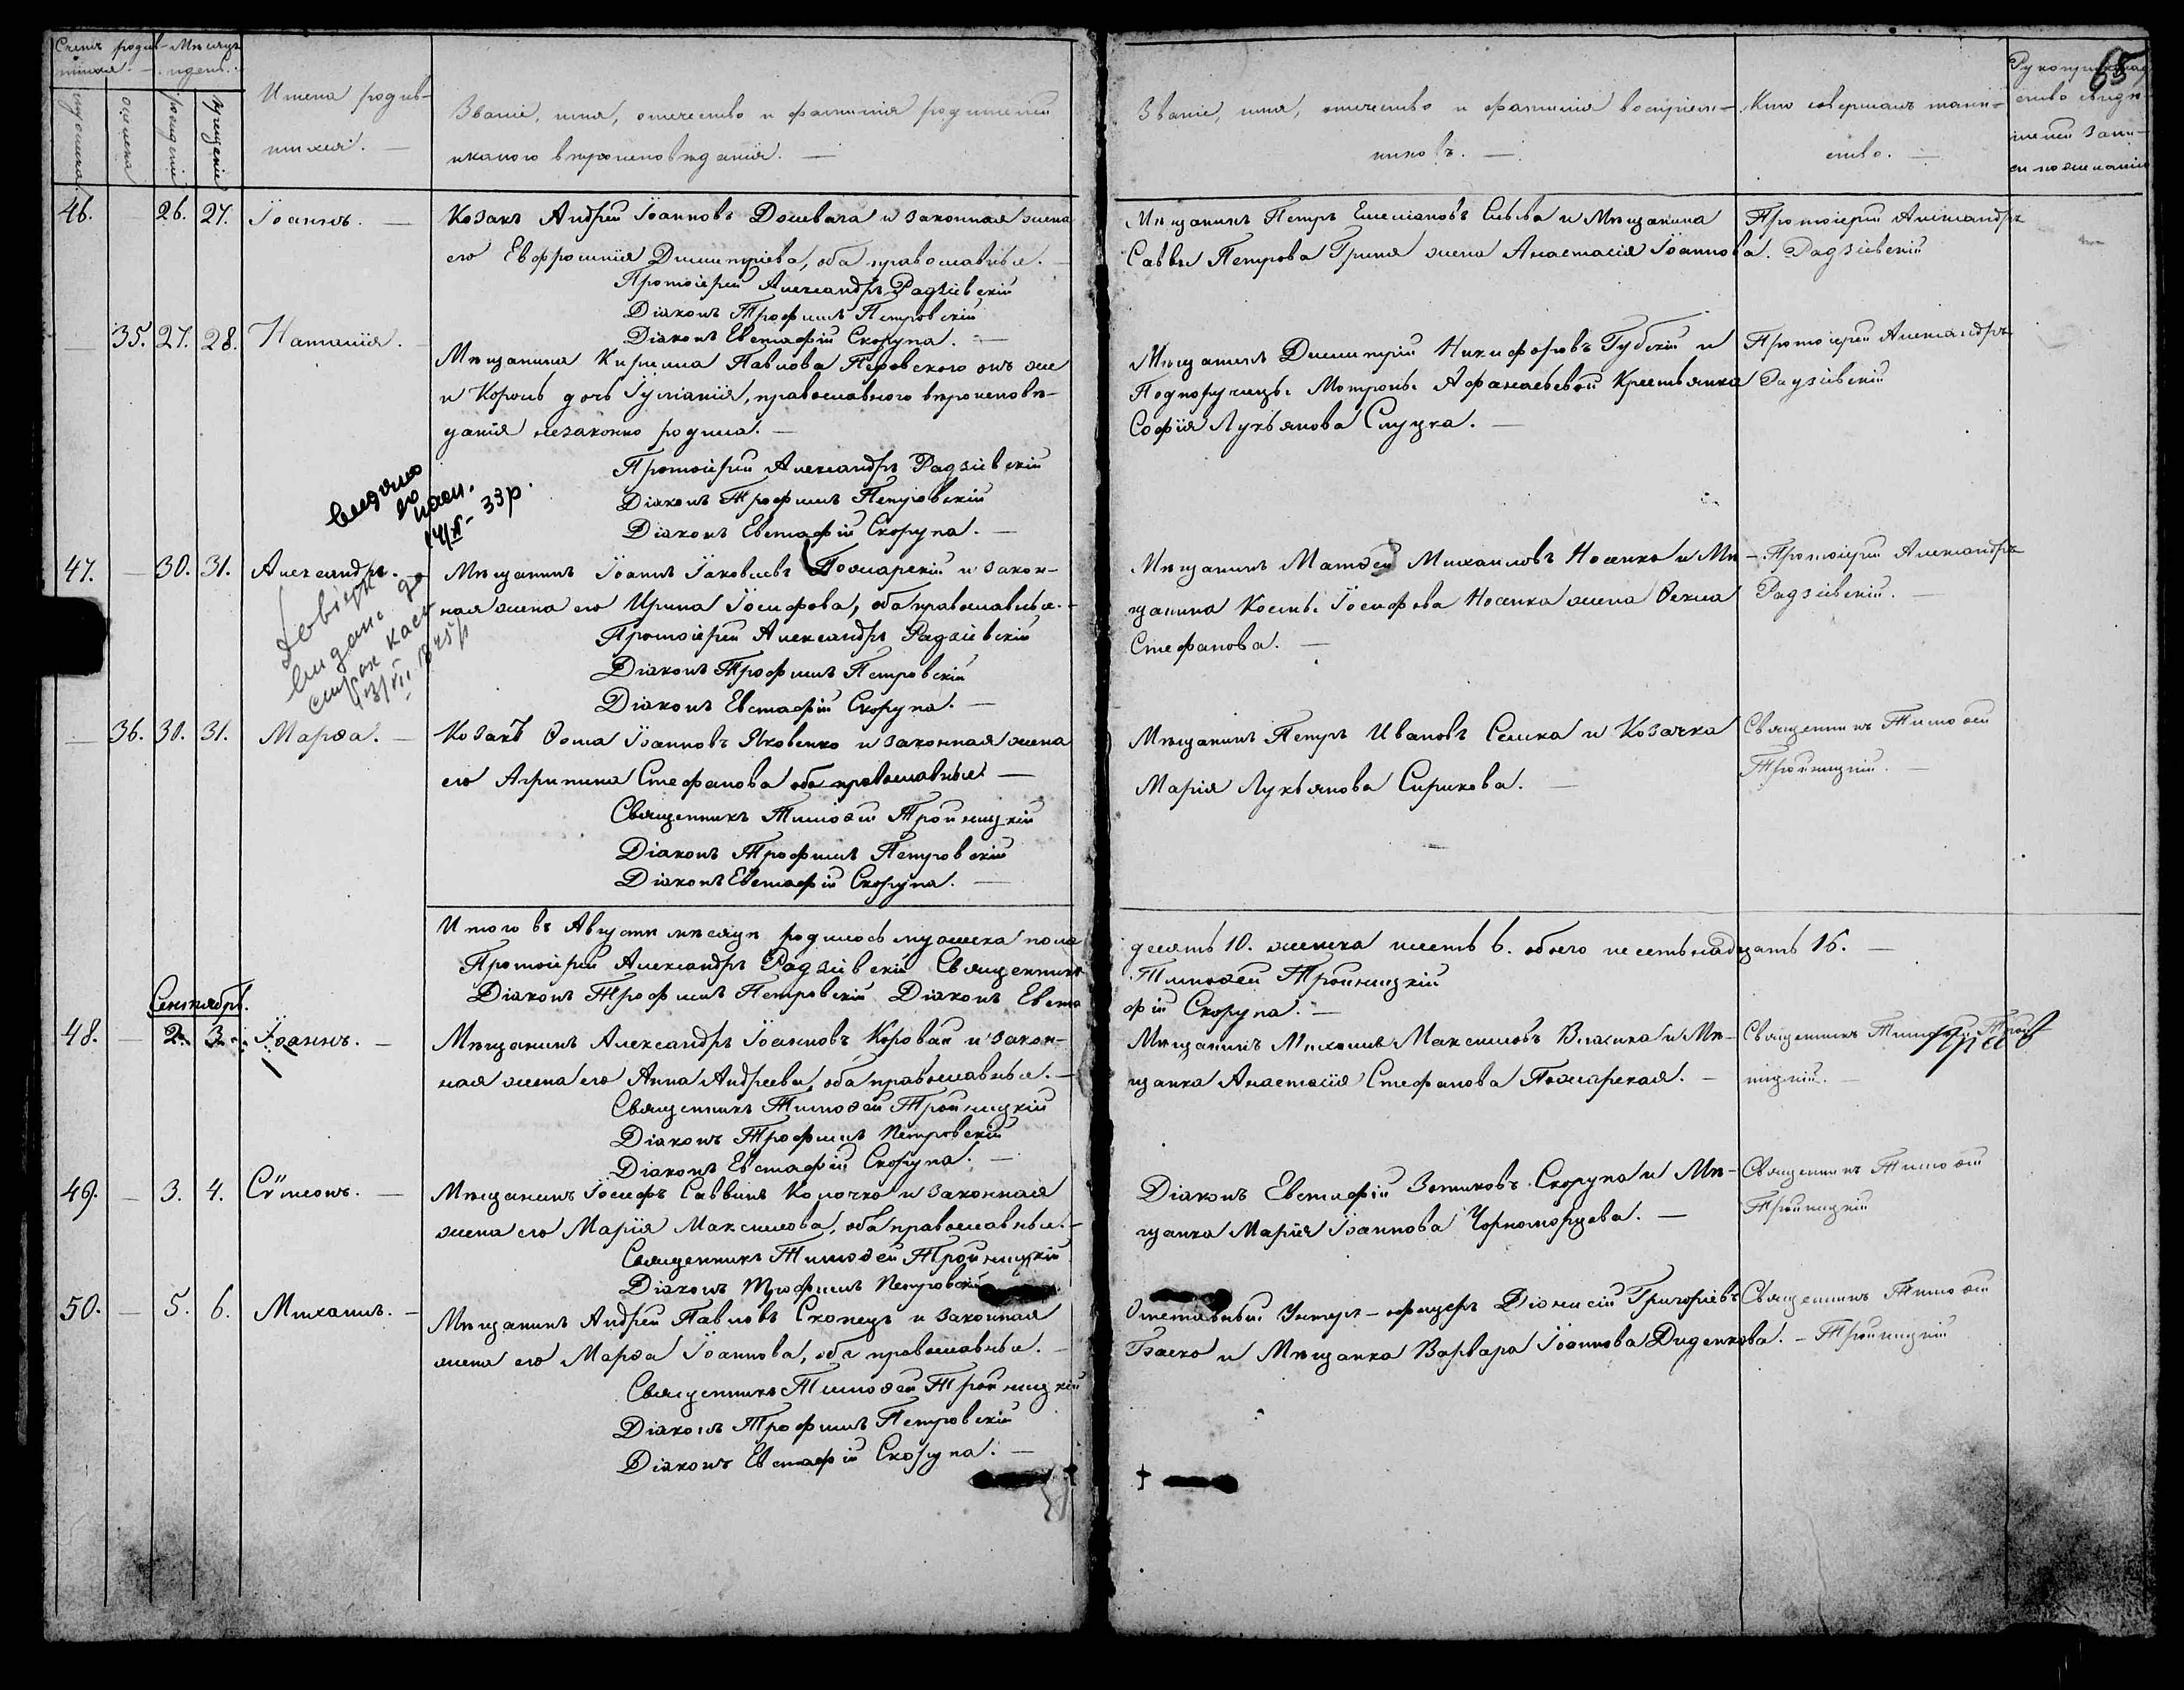 65
Счетъ родив-
шихся.
Мѣсяцъ
и день.
мужеска.
женска
рожденія
крещенія
Имена родив-
шихся. —
Званіе, имя, отечество и фамилія родителей
и какого вѣроисповѣданія. —
Званіе, имя, отечество и фамилія воспріем-
никовъ. —
Кто совершалъ таин-
ство. —
Рукоприклад
ство свидѣ-
телей запи-
си по желанію
46. — 26. 27. Іоаннъ. —
Козакъ Андрей Іоанновъ Дошвага и законная жена
его Евфросинія Димитріева, оба православные. —
Протоіерей Александръ Радзіевскій
Діаконъ Трофимъ Петровскій
Діаконъ Евстафій Скорупа. —
Мѣщанинъ Петръ Емеліановъ Сыва и Мѣщанина
Саввы Петрова Гриня жена Анастасія Іоаннова.
Протоіерей Александръ
Радзіевскій
— 35. 27. 28. Наталія. —
Мѣщанина Кирилла Павлова Перовского онъ же
и Король дочь Іуліанія, православного вѣроисповѣ-
данія незаконно родила. —
Протоіерей Александръ Радзіевскій
Діаконъ Трофимъ Петровскій
Діаконъ Евстафій Скорупа. —
Мѣщанинъ Димитрій Никифоровъ Губскій и
Подпоручицы Матроны Афанасьевой Крестьянка
Софія Лукьянова Слуцка. —
Протоіерей Александръ
Радзіевскій
видано
до
33р.
47. — 30. 31. Александръ. —
Мѣщанинъ Іоаннъ Іаковлевъ Пожарскій и закон-
ная жена его Ирина Іосифова, оба православные. —
Протоіерей Александръ Радзіевскій
Діаконъ Трофимъ Петровскій
Діаконъ Евстафій Скорупа. —
Мѣщанинъ Матѳей Михаиловъ Носенко и Мѣ-
щанина Косты Іосифова Носенка жена Ѳекла
Стефанова. —
Протоіерей Александръ
Радзіевскій. —
Довідк
видано до
страх каси
— 36. 30. 31. Марѳа. —
Козакъ Ѳома Іоанновъ Яковенко и законная жена
его Агрипина Стефанова оба православные —
Священникъ Тимоѳей Тройницкій
Діаконъ Трофимъ Петровскій
Діаконъ Евстафій Скорупа. —
Мѣщанинъ Петръ Ивановъ Семка и Козачка
Марія Лукьянова Сирикова. —
Священникъ Тимоѳей
Тройницкій. —
Итого въ Августѣ мѣсяцѣ родилось мужеска пола
десять 10. женска шесть 6. обоего шестьнадцать 16. —
Протоіерей Александръ Радзіевскій Священникъ
Тимоѳей Тройницкій
Діаконъ Трофимъ Петровскій Діаконъ Евста
фій Скорупа. —
Сентябрь.
48. — 2. 3. Іоаннъ. —
Мѣщанинъ Александръ Іоанновъ Корован и закон-
ная жена его Анна Андреева, оба православные. —
Священникъ Тимоѳей Тройницкій
Діаконъ Трофимъ Петровскій
Діаконъ Евстафій Скорупа. —
Мѣщанинъ Михаилъ Максимовъ Власика и Мѣ-
щанка Анастасія Стефанова Пожарская. —
Священникъ Тимоѳей Трой
ницкій. —
49. — 3. 4. Сѵмеонъ. —
Мѣщанинъ Іосифъ Саввинъ Колочко и законная
жена его Марія Максимова, оба православные. —
Священникъ Тимоѳей Тройницкій
Діаконъ Трофимъ Петровскій
Діаконъ Евстафій Зотиковъ Скорупа и Мѣ-
щанка Марія Іоаннова Чорноморцева. —
Священникъ Тимоѳей
Тройницкій
50. — 5. 6. Михаилъ. —
Мѣщанинъ Андрей Павловъ Скопецъ и законная
жена его Марѳа Іоаннова, оба православные. —
Священникъ Тимоѳей Тройницкій
Діаконъ Трофимъ Петровскій
Діаконъ Евстафій Скорупа. —
Отставный Унтеръ-офицеръ Діонисій Григоріевъ
Баско и Мѣщанка Варвара Іоаннова Диденкова. —
Священникъ Тимоѳей
Тройницкій